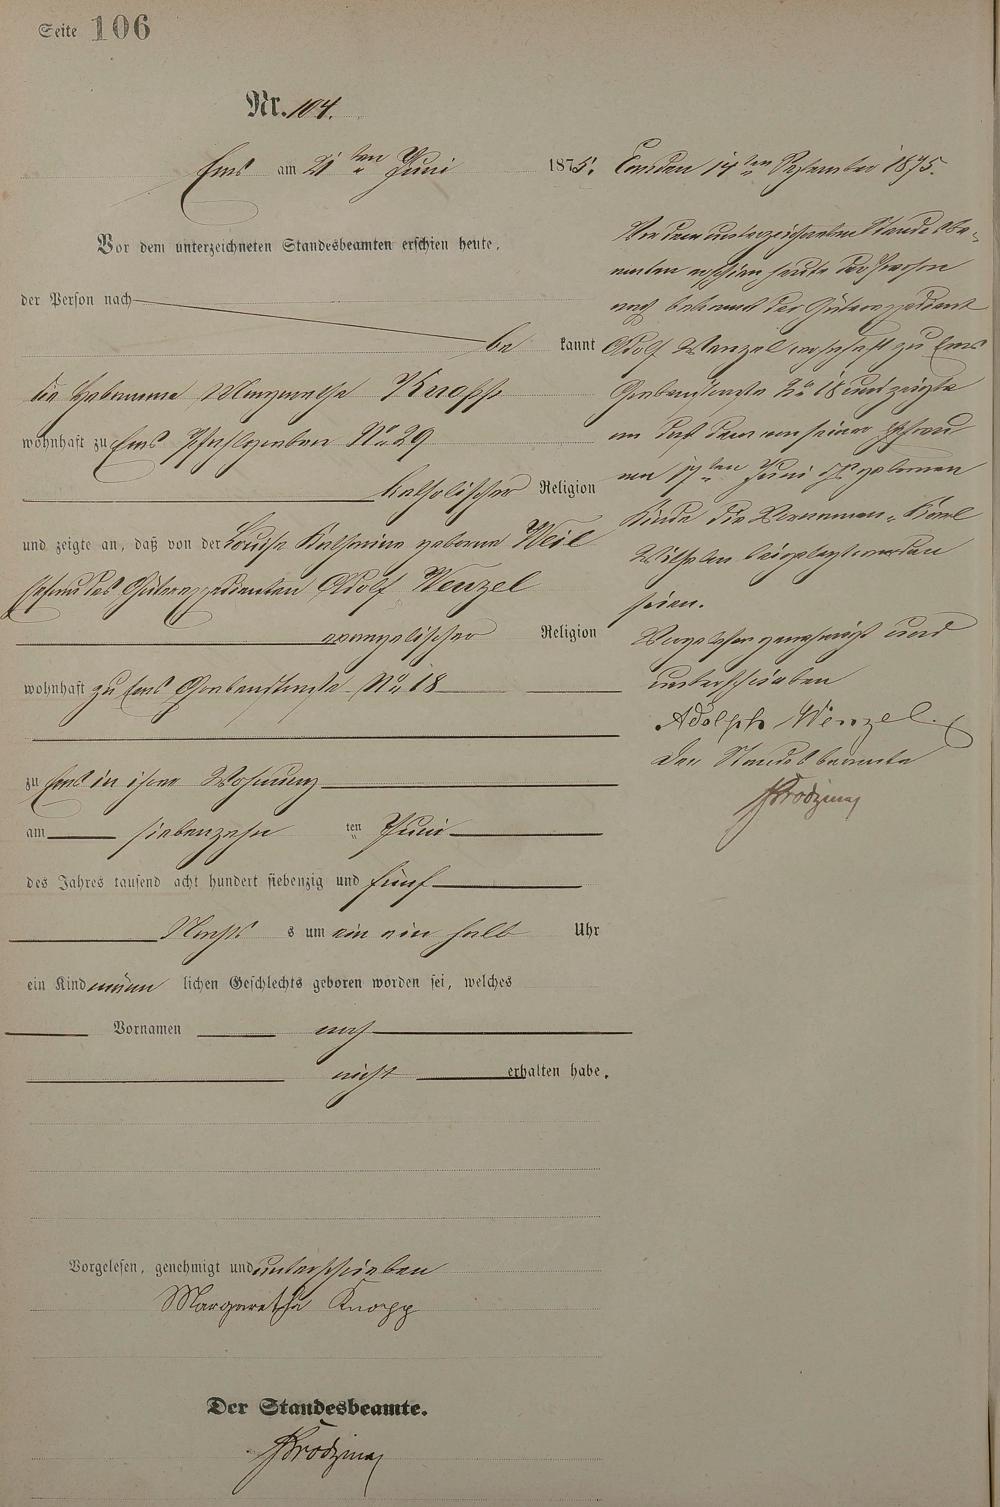 Seite 106
Nr. 104.
Ems am 21ten Juni 1875.
Vor dem unterzeichneten Standesbeamten erschien heute,
der Person nach
be kannt
die Hebamme Margarethe Knopp
wohnhaft zu Ems Pfahlgraben No 29
katholischer Religion
und zeigte an, daß von der Louise Katharine geborne Weil
Ehefrau des Güterexpedienten Adolf Wenzel
evangelischer Religion
wohnhaft zu Ems Grabenstraße No 18
zu Ems in ihrer Wohnung
am siebenzehn ten Juni
des Jahres tausend acht hundert siebenzig und fünf
Nachts s um ein ein halb Uhr
ein Kind männ lichen Geschlechts geboren worden sei, welches
Vornamen noch
nicht erhalten habe.
Vorgelesen, genehmigt und unterschrieben
Margaretha Knopp
Der Standesbeamte.
Ems den 14ten September 1875.
Vor dem unterzeichneten Standesbe-
amten erschien heute der Person
nach bekannt der Güterexpedient
Adolf Wenzel wohnhaft zu Ems
Grabenstraße No 18 und zeigte
an daß dem von seiner Ehefrau
am 17ten Juni gebornen
Kinde die Vornamen Karl
Wilhelm beigelegt worden
seien.
Vorgelesen genehmigt und
unterschrieben
Adolph Wenzel
Der Standesbeamte